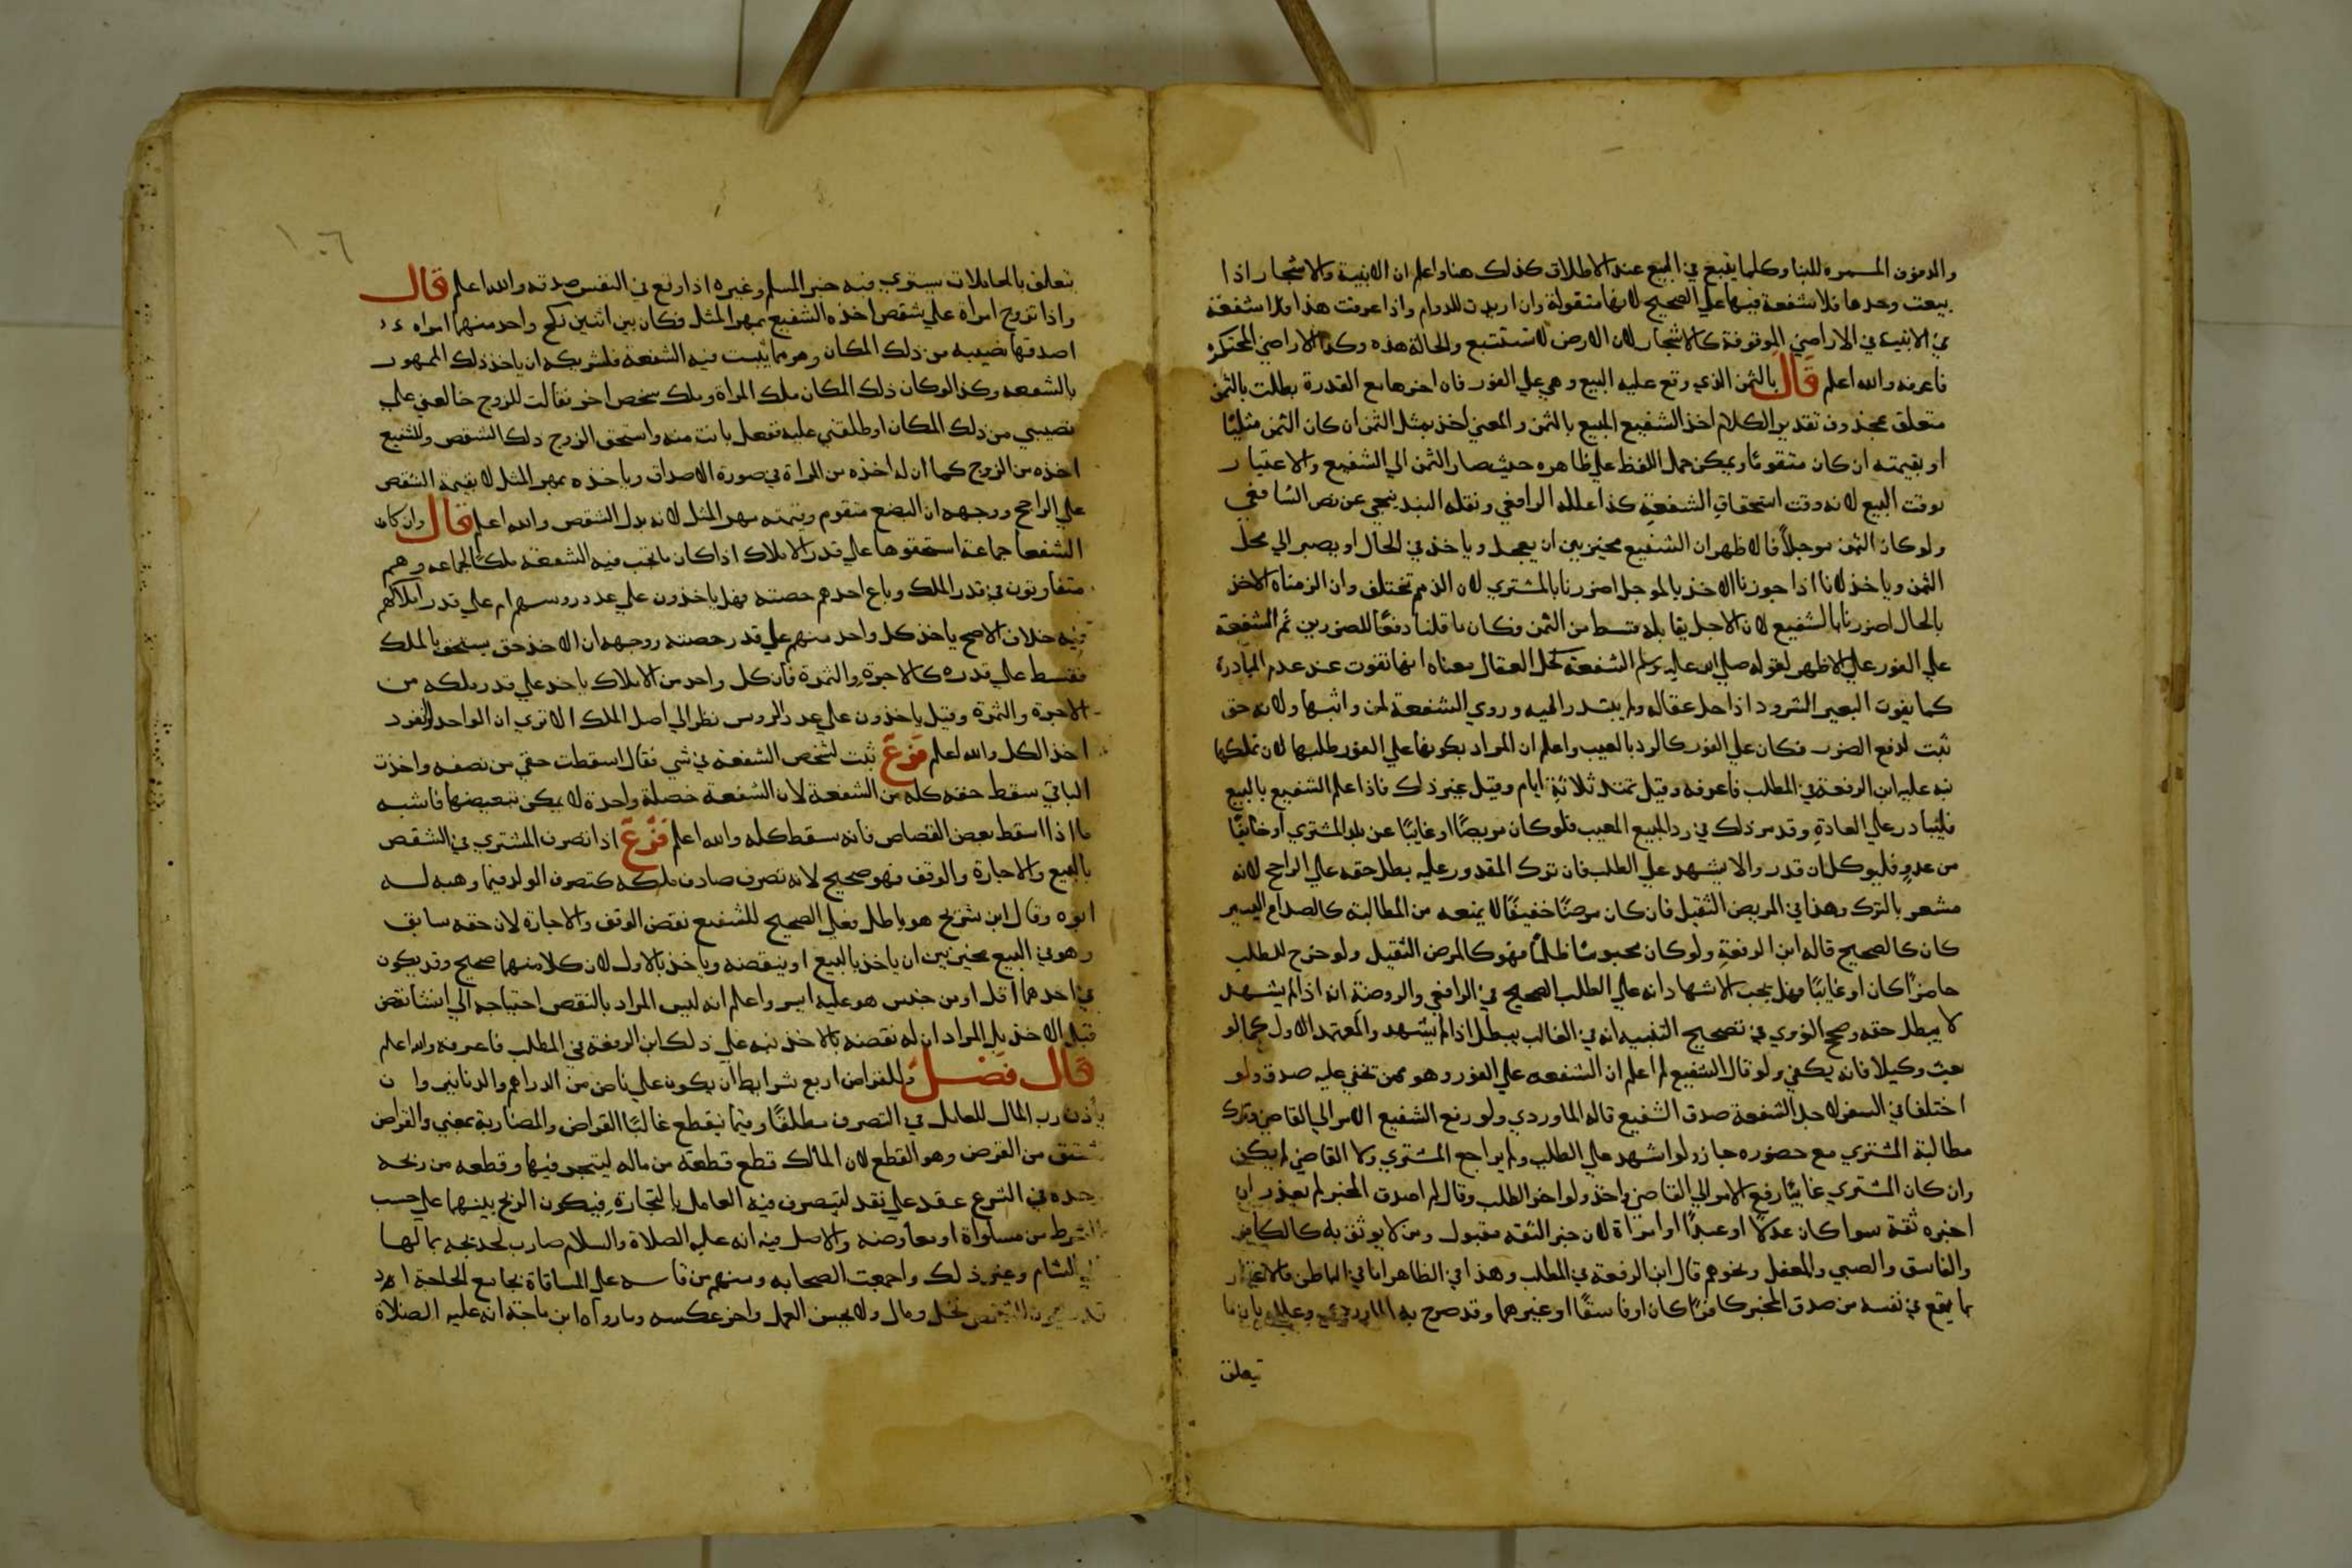 والدفوف المسمره للبنا وكلما يتبع في البيع عند الاطلاق كذلك هنا واعلم ان الابنية والاشجار اذا
بيعت وحدها فلا شفعة فيها علي الصحيح لانها منقولة وان اريدت للدوام واذا عرفت هذا فلا شفعة
في الابنيه في الاراضي الموقوفة كالاشجار لان الارض لا تستتبع والحالة هذه وكذا الاراضي المحتكره
فاعرفه والله اعلم قال بالثمن الذي وقع عليه البيع وهي علي الفور فان اخرها مع القدرة بطلت بالثمن
متعلق بمحذوف تقدير الكلام اخذ الشفيع المبيع بالثمن والمعني اخذ بمثل الثمن ان كان الثمن مثليًا
او بقيمته ان كان متقومًا ويمكن حمل اللفظ علي ظاهره حيث صار الثمن الي الشفيع والاعتبار
بوقت البيع لانه وقت استحقاق الشفعة كذا علله الرافعي ونقله البندنيجي عن نص الشافعي
ولو كان الثمن موجلاً فالاظهر ان الشفيع مخير بين ان يعجل وياخذ في الحال او يصبر الي محل
الثمن وياخذ لانا اذا جوزنا الاخذ بالموجل اضررنا بالمشتري لان الذمم تختلف وان الزمناه الاخذ
بالحال اضررنا بالشفيع لان الاجل يقابله قسط من الثمن فكان ما قلنا دفعًا للضررين ثم الشفعة
علي الفور علي الاظهر لقوله صلي الله عليه وسلم الشفعة كحل العقال معناه انها تفوت عند عدم المبادرة
كما يفوت البعير الشرود اذا حل عقاله ولم يبتدر اليه وروي الشفعة لمن واثبها ولانه حق
ثبت لدفع الضرر فكان علي الفور كالرد بالعيب واعلم ان المراد بكونها علي الفور طلبها لان تملكها
نبه عليه ابن الرفعة في المطلب فاعرفه وقيل تمتد ثلاثة ايام وقيل غير ذلك فاذا علم الشفيع بالبيع
فليبادر علي العادة وقد مر ذلك في رد المبيع المعيب فلو كان مريضًا او غايبًا عن بلد المشتري او خايفًا
من عدوٍ فليوكل ان قدر والا يشهد علي الطلب فان ترك المقدور عليه بطل حقه علي الراجح لانه
مشعر بالترك وهذا في المريض الثقيل فان كان مرضًا خفيفًا لا يمنعه من المطالبة كالصداع اليسير
كان كالصحيح قاله ابن الرفعة ولو كان محبوسًا ظلمًا فهو كالمرض الثقيل ولو خرج للطلب
حاضرًا كان او غايبًا فهل يجب الاشهاد انه علي الطلب الصحيح في الرافعي والروضة انه اذا لم يشهد
لا يبطل حقه وصح النووي في تصحيح التنبيه انه في الغالب يبطل اذا لم يشهد والمعتمد الاول كما لو
بعث وكيلا فانه يكفي ولو قال الشفيع لم اعلم ان الشفعه علي الفور وهو ممن تخفي عليه صدق ولو
اختلفا في السفر لاجل الشفعة صدق الشفيع قاله الماوردي ولو رفع الشفيع الامر الي القاضي وترك
مطالبة المشتري مع حضوره جاز ولو اشهد علي الطلب ولم يراجع المشتري ولا القاضي لم يكف
وان كان المشتري غايبًا رفع الامر الي القاضي واخذ ولو اخر الطلب وقال لم اصدق المخبر لم يعذر ان
اخبره ثقة سوا كان عدلًا او عبدًا او امراة لان خبر الثقه مقبول ومن لا يوثق به كالكافر
والفاسق والصبي والمغفل ونحوهم قال ابن الرفعة في المطلب وهذا في الظاهر اما في الباطن فالاعتبار
بما يقع في نفسه من صدق المخبر كافرًا كان او فاسقًا او غيرهما وقد صرح به الماوردي وعلله بان ما
يتعلق
١٠٦
يتعلق بالمعاملات يستوي فيه خبر المسلم وغيره اذا وقع في النفس صدقه والله اعلم قال
واذا تزوج امراة علي شقص اخذه الشفيع بمهر المثل فكان بين اثنين نكح واحد منهما امراه
اصدقها نصيبه من ذلك المكان وهو مما يثبت فيه الشفعة فلشريكه ان ياخذ ذلك الممهور
بالشفعه وكذا لو كان ذلك المكان ملك المراة وملك شخص اخر فقالت للزوج خالعني علي
نصيبي من ذلك المكان او طلقني عليه ففعل بانت منه واستحق الزوج ذلك الشقص وللشفيع
اخذه من الزوج كما ان له اخذه من المراة في صورة الاصداق وياخذه بمهر المثل لا بقيمة الشقص
علي الراجح ووجهه ان البضع متقوم وقيمته مهر المثل لانه بدل الشقص والله اعلم قال وان كان
الشفعا جماعة استحقوها علي قدر الاملاك اذا كان ما تجب فيه الشفعة ملكًا لجماعه وهم
متفاوتون في قدر الملك وباع احدهم حصته فهل ياخذون علي عدد روسهم ام علي قدر املاكهم
فيه خلاف الاصح ياخذ كل واحد منهم علي قدر حصته ووجهه ان الاخذ حق يستحق بالملك
فقسط علي قدره كالاجرة والثمرة فان كل واحد من الاملاك ياخذ علي قدر ملكه من
الاجرة والثمرة وقيل ياخذون علي عدد الروس نظرا الي اصل الملك الا تري ان الواحد لو انفرد
اخذ الكل والله اعلم فرع ثبت لشخص الشفعة في شي فقال اسقطت حقي من نصفه واخذت
الباقي سقط حقه كله من الشفعة لان الشفعة خصلة واحدة لا يمكن تبعيضها فاشبه
ما اذا اسقط بعض القصاص فانه يسقط كله والله اعلم فرع اذا تصرف المشتري في الشقص
بالبيع والاجارة والوقف فهو صحيح لانه تصرف صادف ملكه كتصرف الولد فيما وهبه له
ابوه وقال ابن شريح هو باطل فعلي الصحيح للشفيع نقض الوقف والاجارة لان حقه سابق
وهو في البيع مخير بين ان ياخذ بالبيع او ينقضه وياخذ بالاول لان كلا منهما صحيح وقد يكون
في احدهما اقل او من جنس هو عليه ايسر واعلم انه ليس المراد بالنقض احتياجه الي انشا نقض
قبل الاخذ بل المراد ان له نقضه بالاخذ نبه علي ذلك ابن الرفعة في المطلب فاعرفه والله اعلم
قال فصل وللقراض اربع شرايط ان يكون علي ناض من الدراهم والدنانير وان
ياذن رب المال للعامل في التصرف مطلقًا وفيما ينقطع غالبًا القراض والمضاربة بمعني والقراض
مشتق من القرض وهو القطع لان المالك قطع قطعة من ماله ليتجر فيها وقطعه من ربحه
وحده في الشرع عقد علي نقد ليتصرف فيه العامل بالتجارة فيكون الربح بينهما علي حسب
الشرط من مساواة او مفاوضه والاصل فيه انه عليه الصلاة والسلام ضارب لخديجه بمالها
الي الشام وغير ذلك واجمعت الصحابه ومنهم من قاسه علي المساقاة بجامع الحاجة اذ
قد نخل ومال ولا يحسن العمل واخر عكسه وما رواه ابن ماجة انه عليه الصلاة